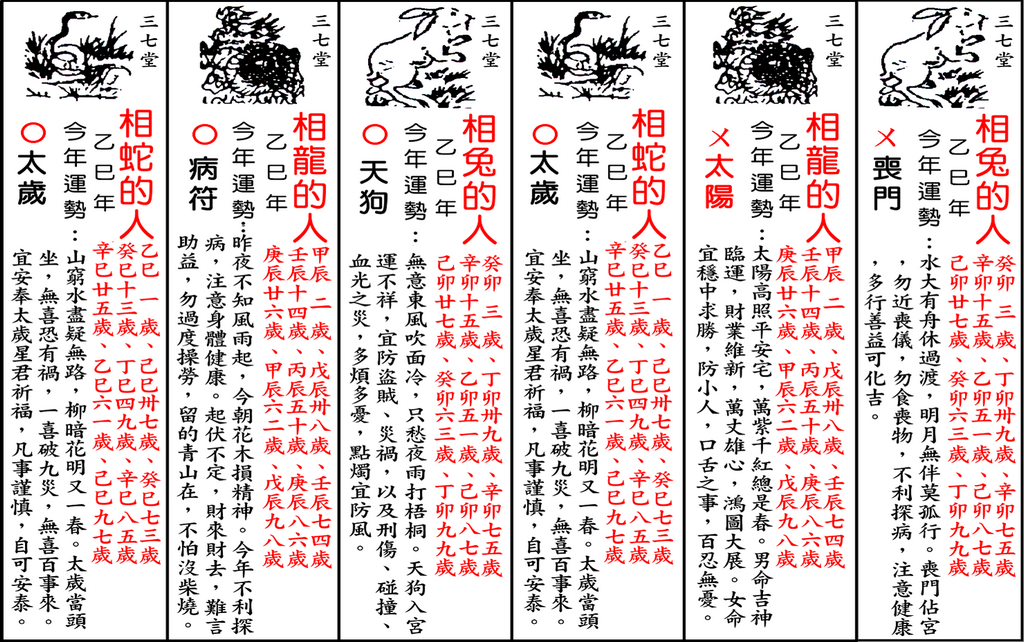 三七堂
相兔的人
癸卯 三 歲、丁卯卅九歲、辛卯七五歲
辛卯十五歲、乙卯五一歲、己卯八七歲
己卯廿七歲、癸卯六三歲、丁卯九九歲
乙巳年
今年運勢:水大有舟休過渡,明月無伴莫孤行。喪門佔宮
,勿近喪儀,勿食喪物,不利探病,注意健康
,多行善益可化吉。
ㄨ喪門
三七堂
相龍的人
甲辰 二 歲、戊辰卅八歲、壬辰七四歲
壬辰十四歲、丙辰五十歲、庚辰八六歲
庚辰廿六歲、甲辰六二歲、戊辰九八歲
乙巳年
今年運勢:太陽高照平安宅,萬紫千紅總是春。男命吉神
臨運,財業維新,萬丈雄心,鴻圖大展。女命
宜穩中求勝,防小人,口舌之事,百忍無憂。
ㄨ太陽
三七堂
相蛇的人
乙巳 一 歲、己巳卅七歲、癸巳七三歲
癸巳十三歲、丁巳四九歲、辛巳八五歲
辛巳廿五歲、乙巳六一歲、己巳九七歲
乙巳年
今年運勢:山窮水盡疑無路,柳暗花明又一春。太歲當頭
坐,無喜恐有禍,一喜破九災,無喜百事來。
宜安奉太歲星君祈福,凡事謹慎,自可安泰。
○太歲
三七堂
相兔的人
癸卯 三 歲、丁卯卅九歲、辛卯七五歲
辛卯十五歲、乙卯五一歲、己卯八七歲
己卯廿七歲、癸卯六三歲、丁卯九九歲
乙巳年
今年運勢:無意東風吹面冷,只愁夜雨打梧桐。天狗入宮
運不祥,宜防盜賊、災禍,以及刑傷、碰撞、
血光之災,多煩多憂,點燭宜防風。
○天狗
相龍的人
甲辰 二 歲、戊辰卅八歲、壬辰七四歲
壬辰十四歲、丙辰五十歲、庚辰八六歲
庚辰廿六歲、甲辰六二歲、戊辰九八歲
乙巳年
今年運勢:昨夜不知風雨起,今朝花木損精神。今年不利探
病,注意身體健康。起伏不定,財來財去,難言
助益,勿過度操勞,留的青山在,不怕沒柴燒。
○病符
三七堂
相蛇的人
乙巳 一 歲、己巳卅七歲、癸巳七三歲
癸巳十三歲、丁巳四九歲、辛巳八五歲
辛巳廿五歲、乙巳六一歲、己巳九七歲
乙巳年
今年運勢:山窮水盡疑無路,柳暗花明又一春。太歲當頭
坐,無喜恐有禍,一喜破九災,無喜百事來。
宜安奉太歲星君祈福,凡事謹慎,自可安泰。
○太歲